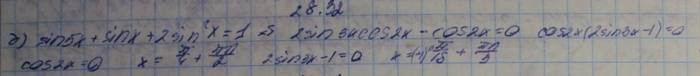 28.32
б) sin5x + sinx + 2sin²x = 1 ⇔ 2sin3xcos2x - cos2x = 0 cos2x(2sin3x-1) = 0
cos2x = 0 x = π/4 + πn/2 2sin3x-1 = 0 x = (-1)ⁿ π/18 + πn/3